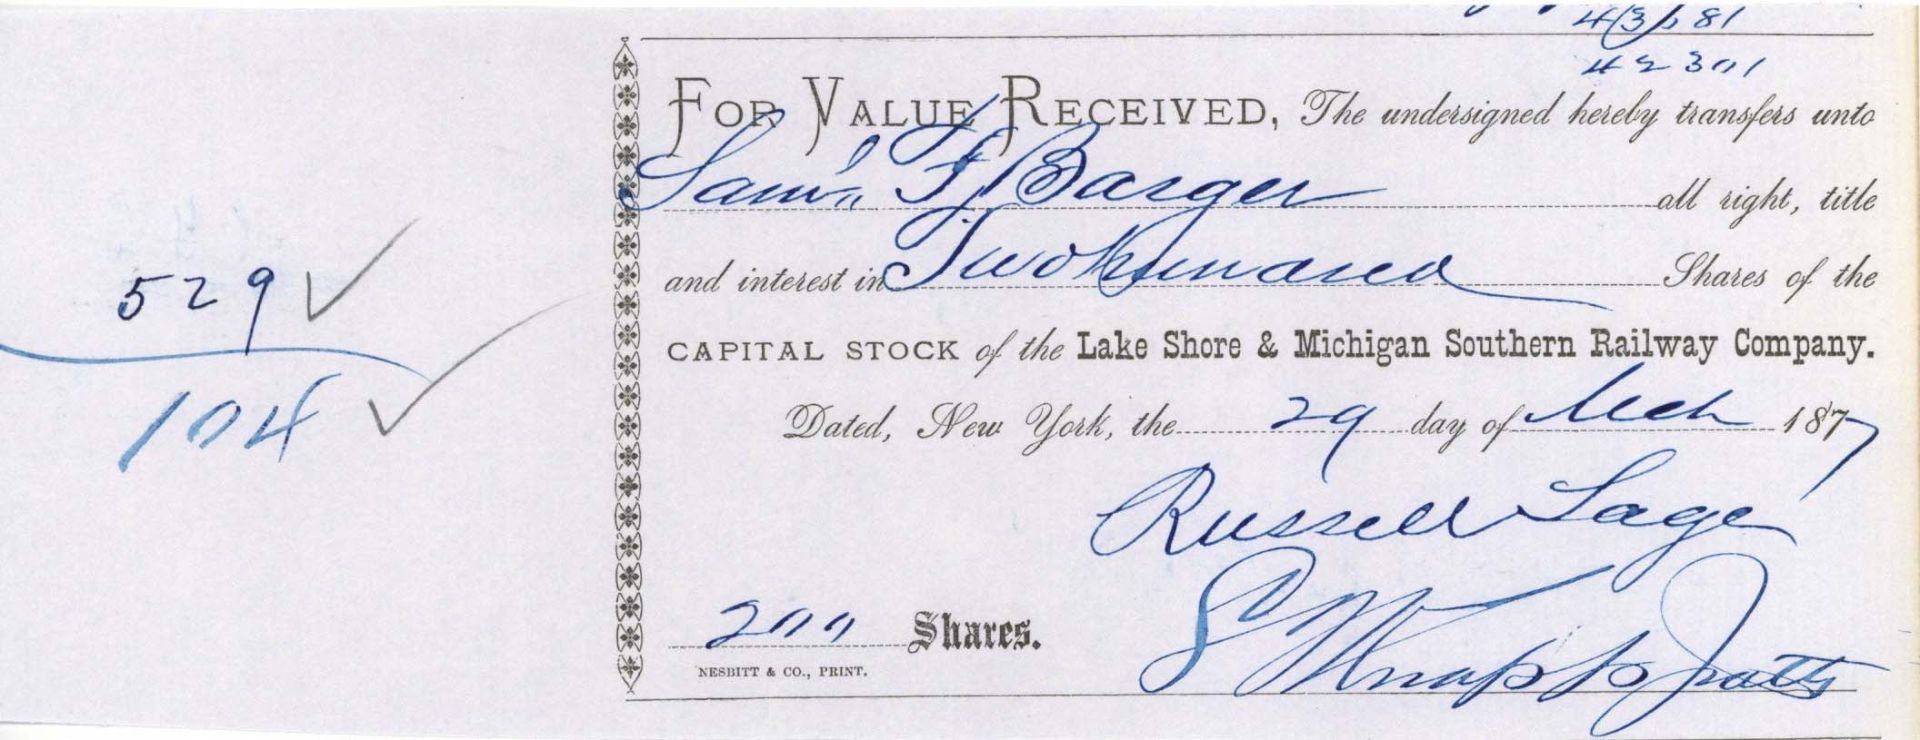 42301
FOR VALUE RECEIVED, The undersigned hereby transfers unto
Saml. F. Barger all right, title
and interest in Two hundred Shares of the
CAPITAL STOCK of the Lake Shore & Michigan Southern Railway Company.
Dated, New York, the 29 day of Mch 1877
Russell Sage
200 Shares.
NESBITT & CO., PRINT.
529
104